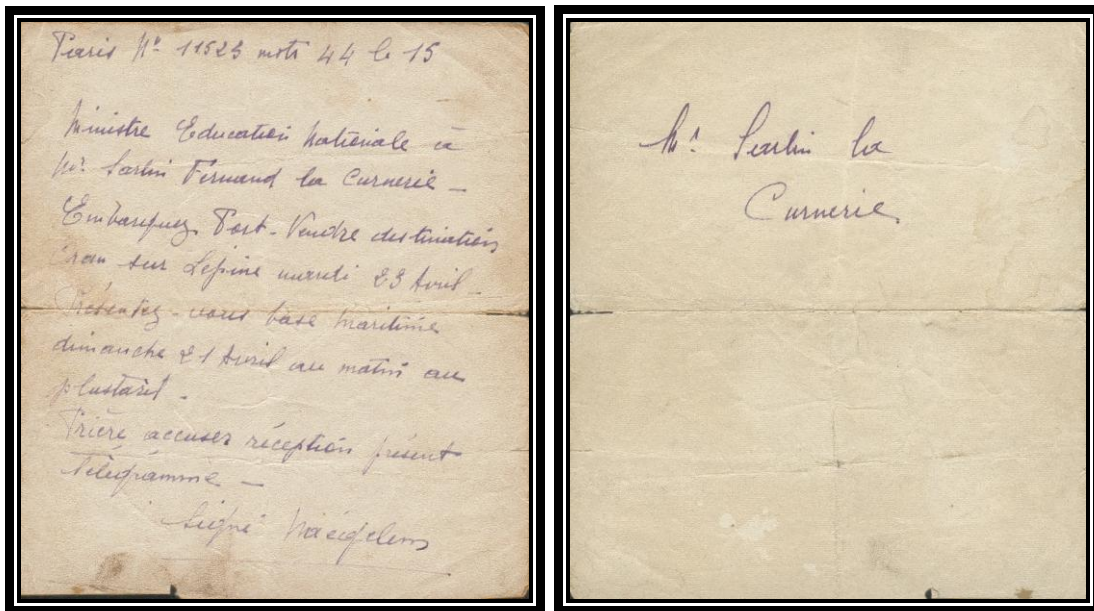 Paris N° 11523 mots 44 le 15
Ministre Education Nationale à
Mr. Sarlin Fernand la Curnerie –
Embarquez Port-Vendre destination
Oran sur Lépine mardi 23 Avril –
Présentez-vous base maritime
dimanche 21 Avril au matin au
plustard.
Prière accuser réception présent
Télégramme –
Signé Naegelen
Mr Sarlin la
Curnerie